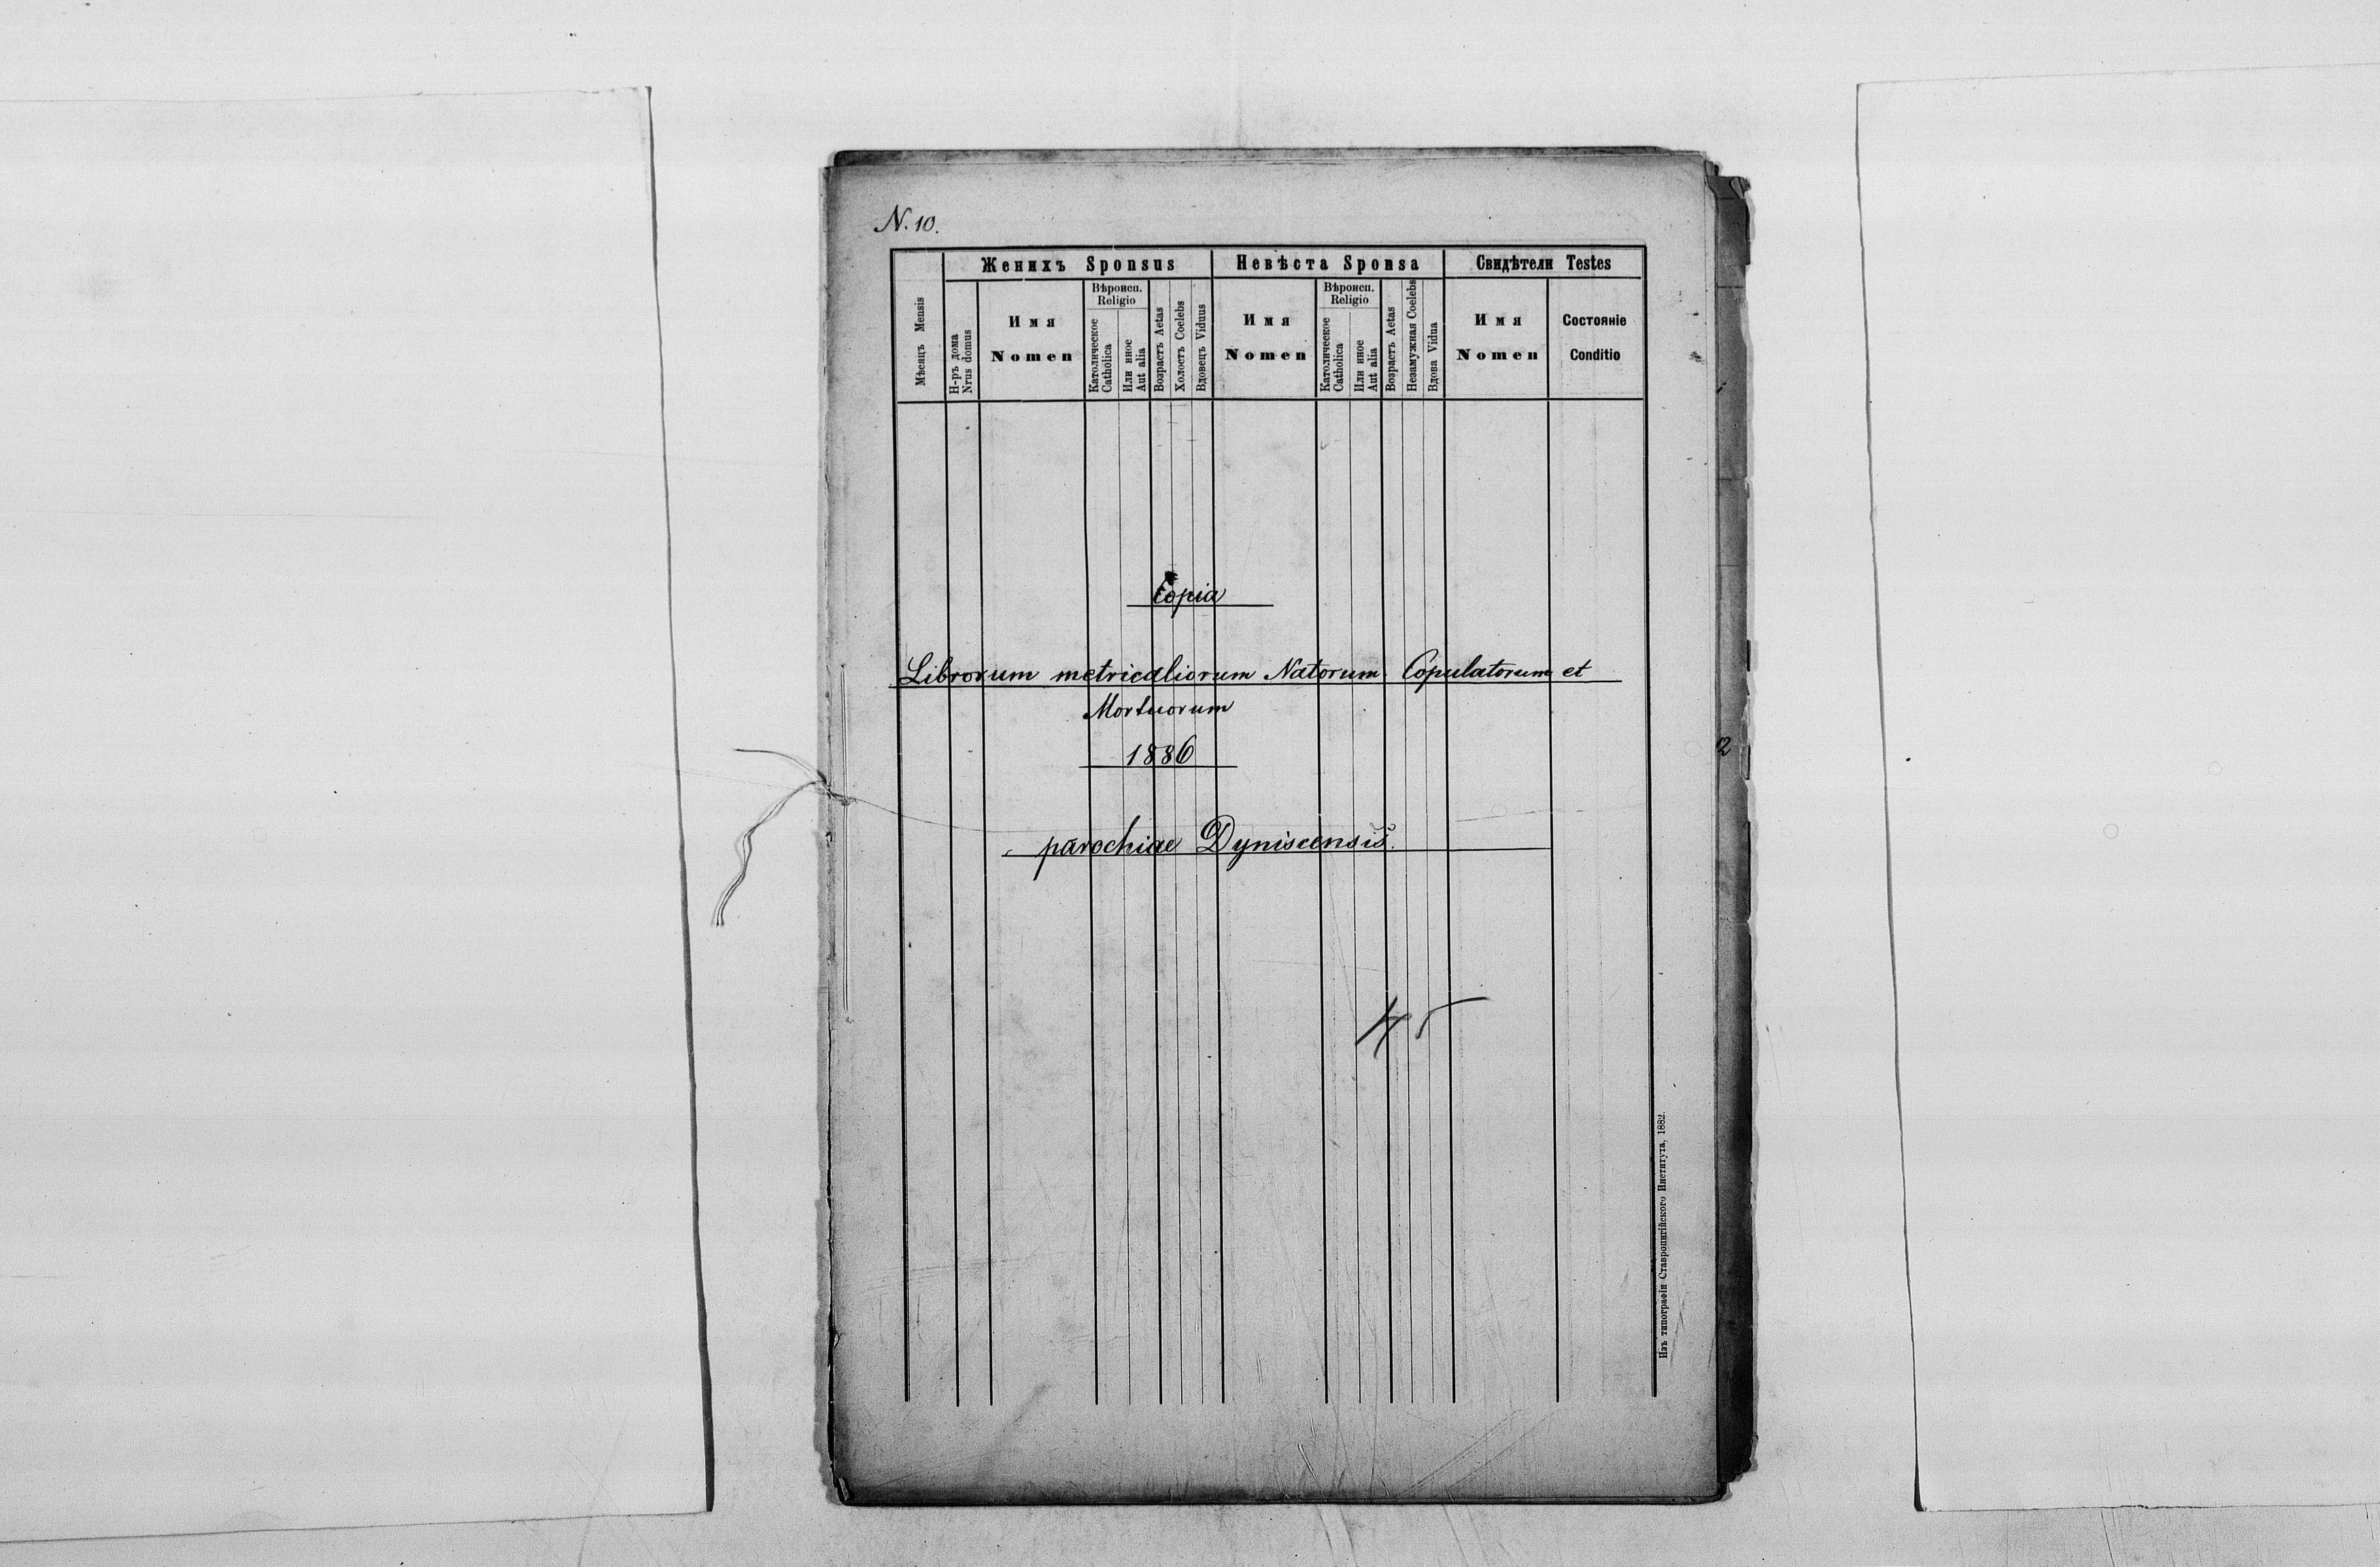 N. 10.
Женихъ Sponsus
Невѣста Sponsa
Свидѣтели Testes
Мѣсяцъ Mensis
Н-ръ дома
Nrus domus
Имя
Nomen
Вѣроисп.
Religio
Католическое
Catholica
Или иное
Aut alia
Возрастъ Aetas
Холостъ Coelebs
Вдовецъ Viduus
Имя
Nomen
Вѣроисп.
Religio
Католическое
Catholica
Или иное
Aut alia
Возрастъ Aetas
Незамужная Coelebs
Вдова Vidua
Имя
Nomen
Состояніе
Conditio
Copia
Librorum metricaliorum Natorum Copulatorum et
Mortuorum
1886
parochiae Dyniscensis.
45
2
Изъ типографіи Ставропигійского Института, 1882.